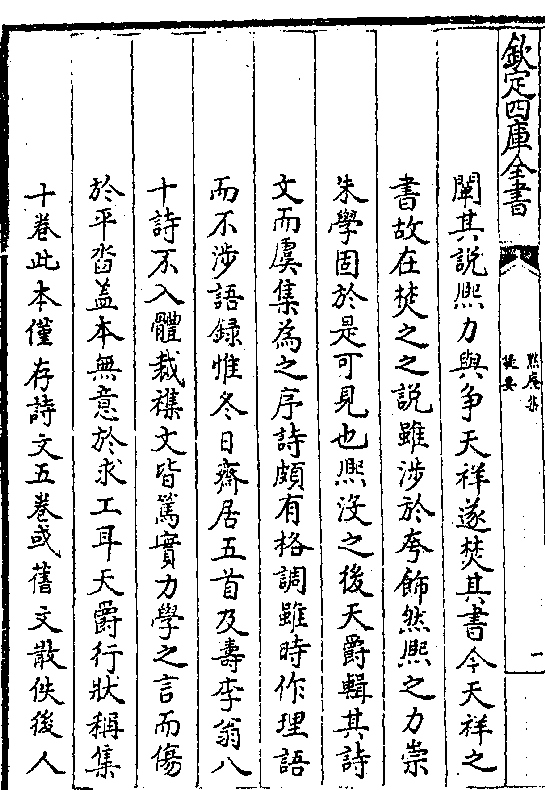 欽定四庫全書
默庵集
提要
一
闡其說熙力與爭天祥遂焚其書今天祥之
書故在焚之之說雖涉於夸飾然熙之力崇
朱學固於是可見也熙沒之後天爵輯其詩
文而虞集為之序詩頗有格調雖時作理語
而不涉語録惟冬日齋居五首及壽李翁八
十詩不入體裁襍文皆篤實力學之言而傷
於平沓蓋本無意於求工耳天爵行狀稱集
十卷此本僅存詩文五卷或舊文散佚後人